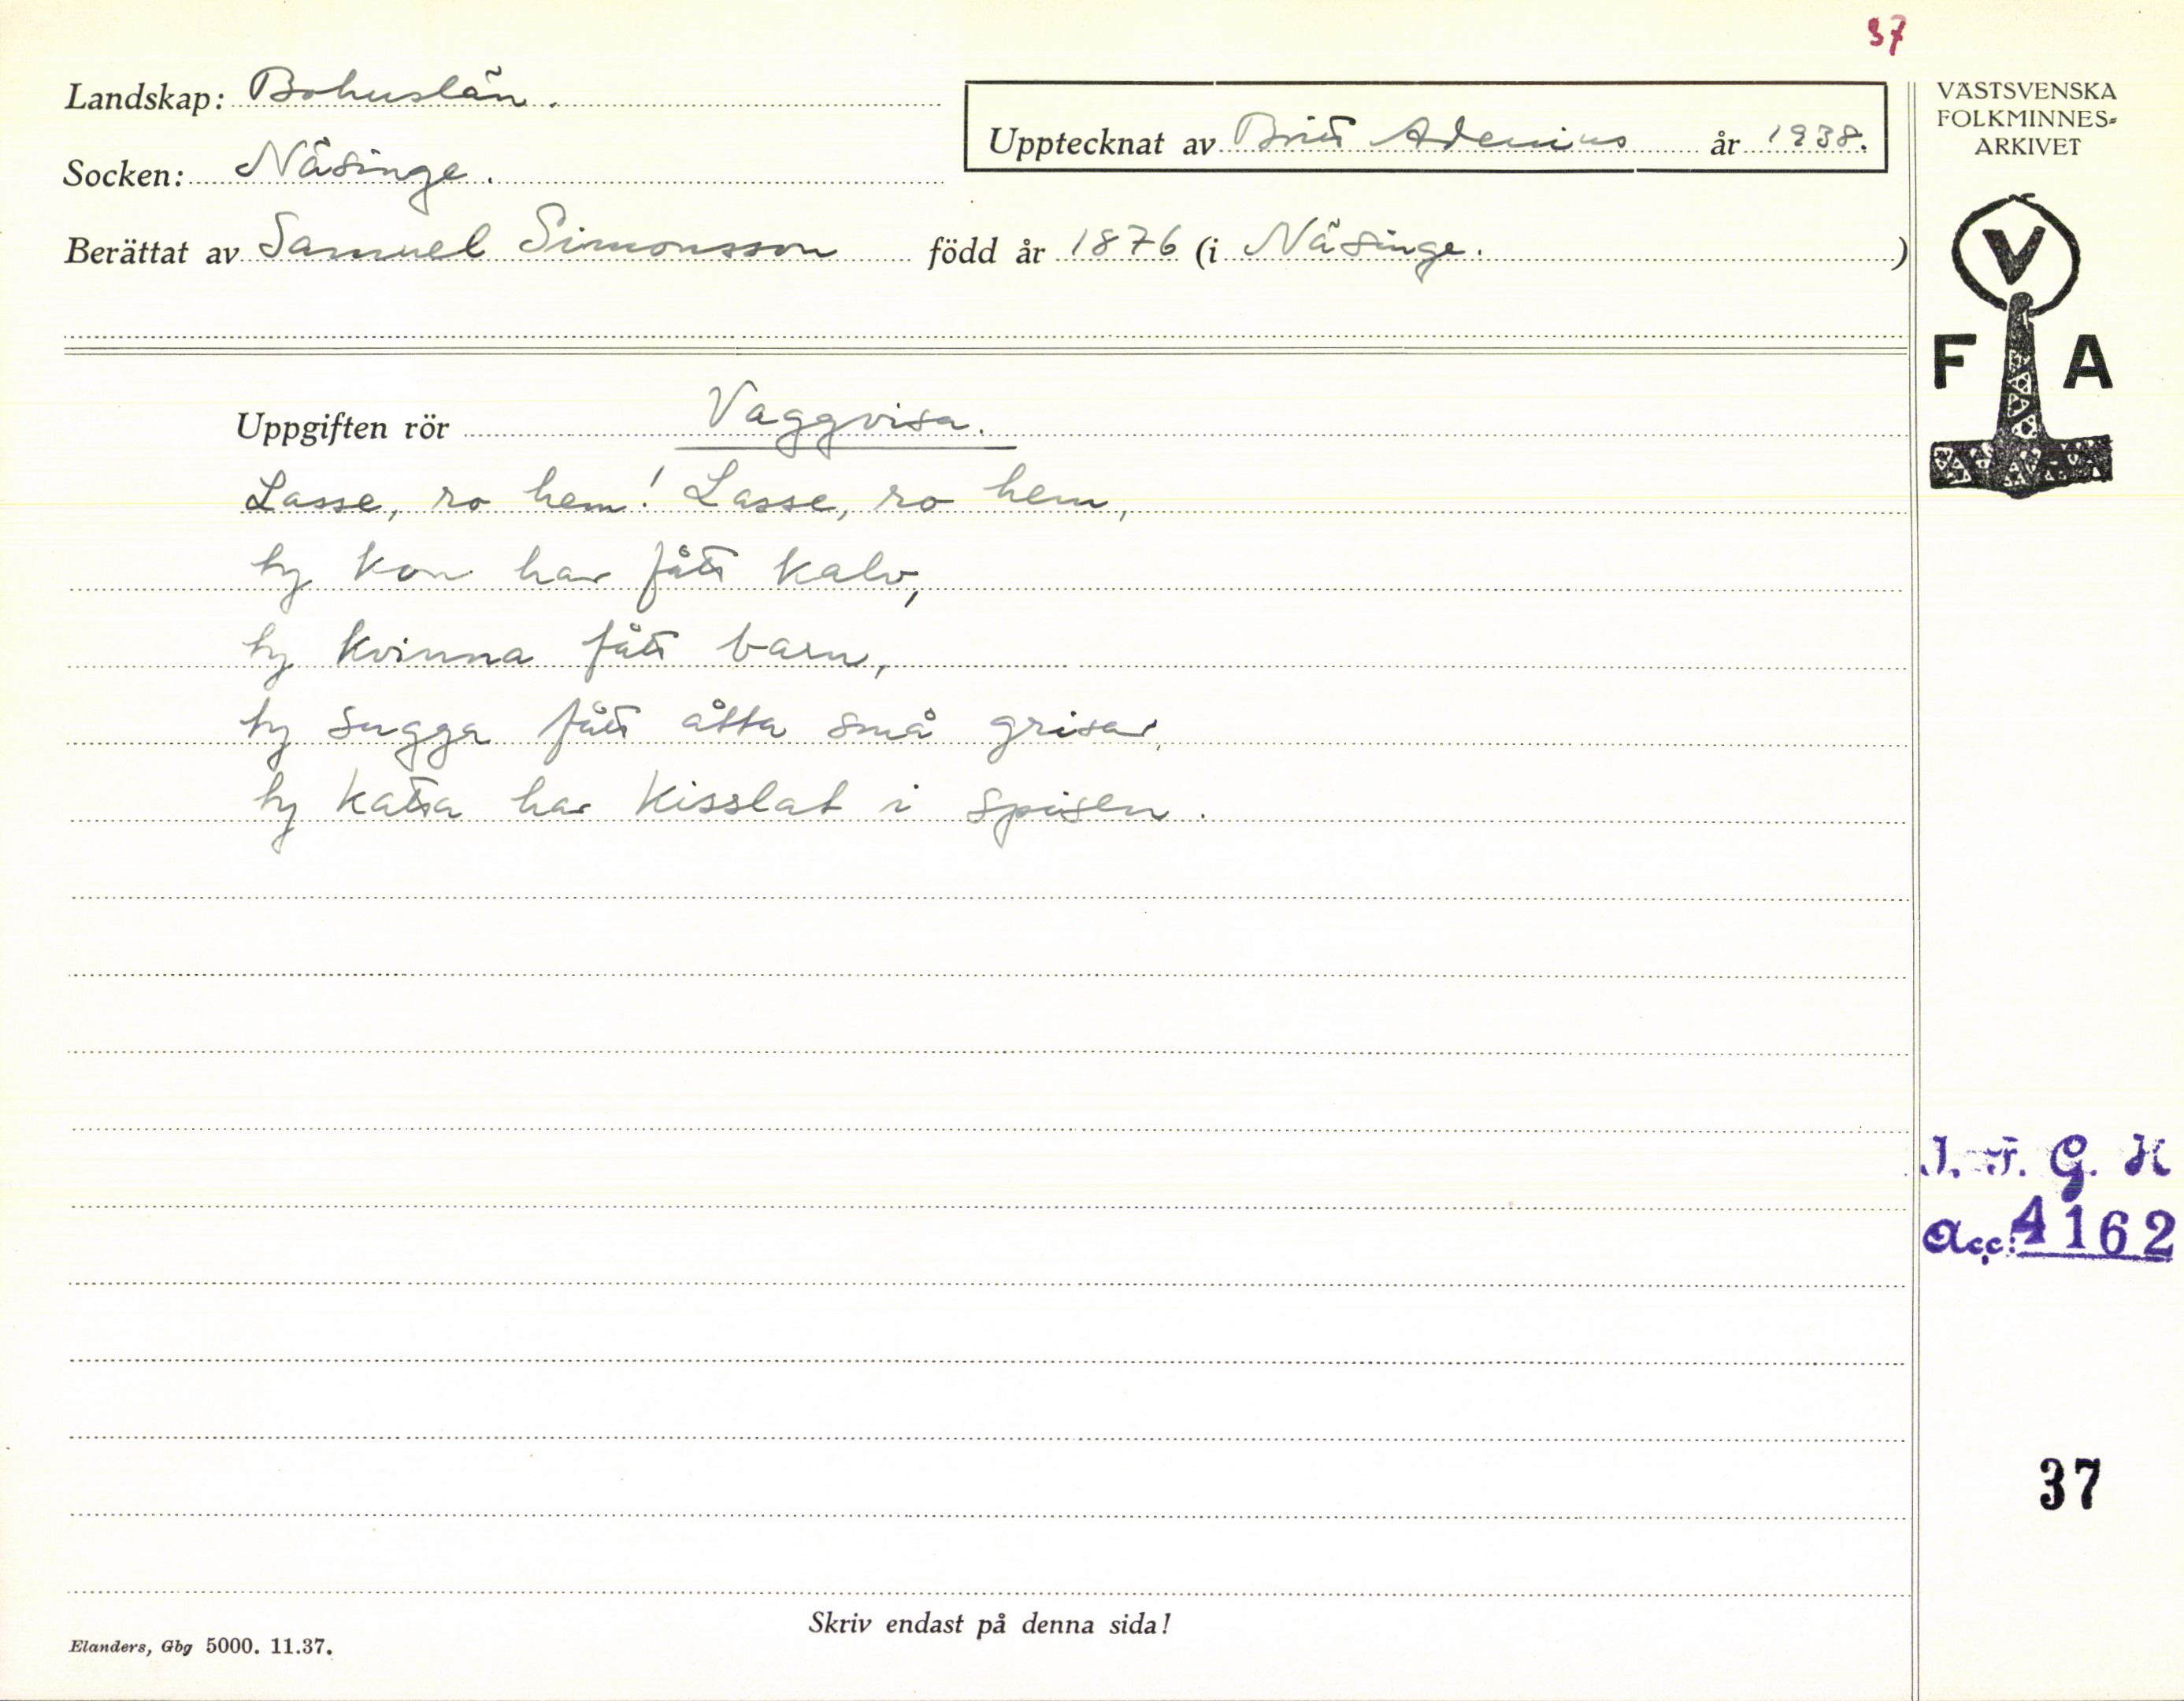 37
Landskap: Bohuslän.
Socken: Näsinge.
Upptecknat av Britt Adenius år 1938.
Berättat av Samuel Simonsson född år 1876 (i Näsinge.)
VÄSTSVENSKA
FOLKMINNES-
ARKIVET
V
F A
Uppgiften rör Vaggvisa.
Lasse, ro hem! Lasse, ro hem,
ty kon har fått kalv,
ty kvinna fått barn,
ty sugga fått åtta små grisar,
ty katta har kisslat i spisen.
I. F. G. H
Acc: 4162
37
Skriv endast på denna sida!
Elanders, Gbg 5000. 11.37.